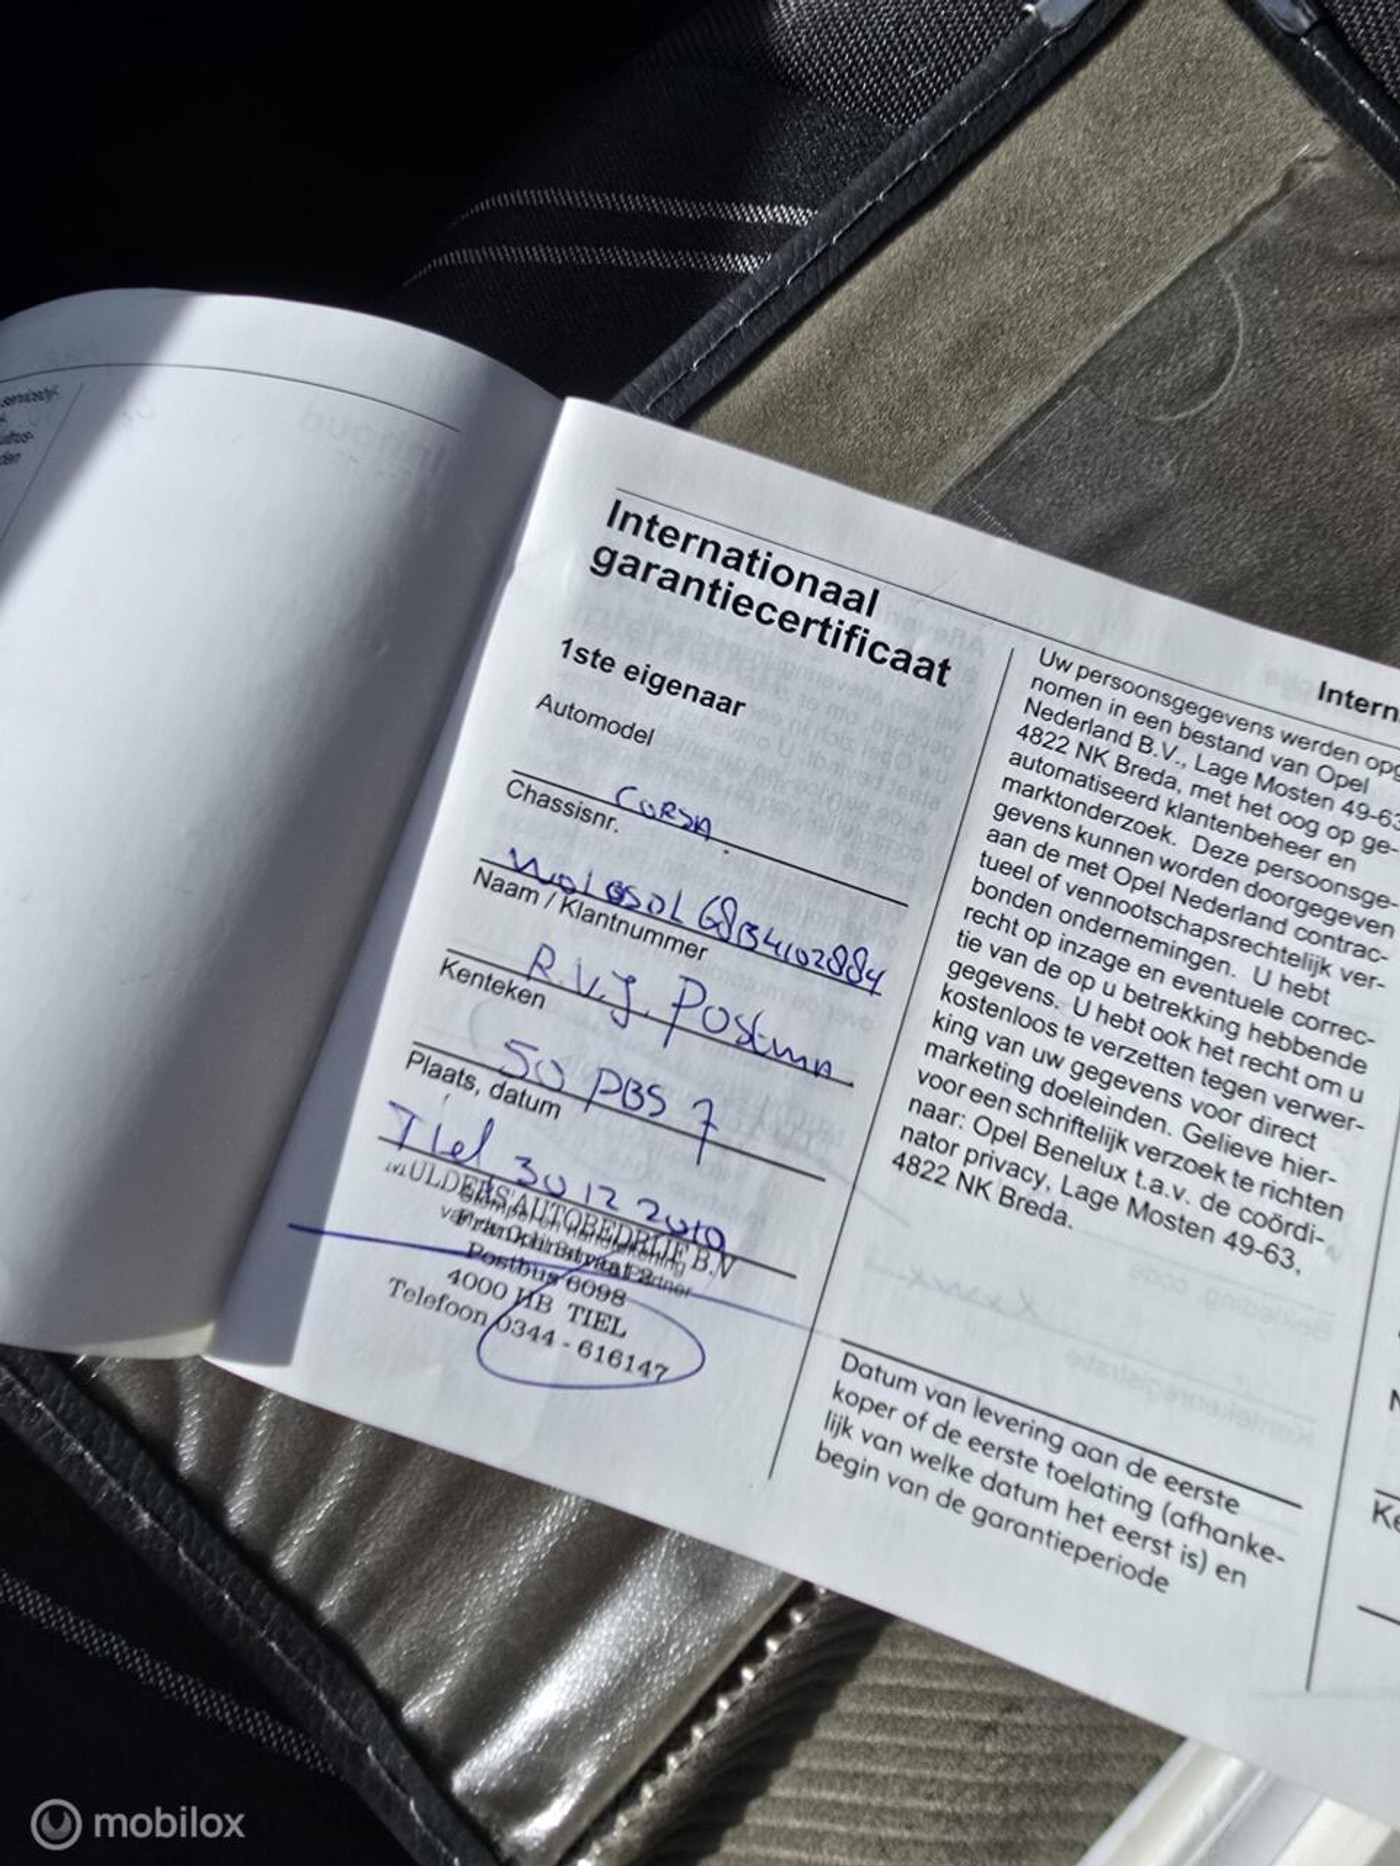 servicebij-
uitrus-
den
Internationaal
garantiecertificaat
1ste eigenaar
Automodel
CORSA
Chassisnr.
W0L0SDL68B4102884
Naam / Klantnummer
R.V.J. Postma
Kenteken
50 PBS 7
Plaats, datum
Tiel 30 12 2010
MULDERS' AUTOBEDRIJF B.V
Postbus 6098
4000 HB TIEL
Telefoon 0344 - 616147
Intern
Uw persoonsgegevens werden opg
nomen in een bestand van Opel
Nederland B.V., Lage Mosten 49-63
4822 NK Breda, met het oog op ge-
automatiseerd klantenbeheer en
marktonderzoek. Deze persoonsge-
gevens kunnen worden doorgegeven
aan de met Opel Nederland contrac-
tueel of vennootschapsrechtelijk ver-
bonden ondernemingen. U hebt
recht op inzage en eventuele correc-
tie van de op u betrekking hebbende
gegevens. U hebt ook het recht om u
kostenloos te verzetten tegen verwer-
king van uw gegevens voor direct
marketing doeleinden. Gelieve hier-
voor een schriftelijk verzoek te richten
naar: Opel Benelux t.a.v. de coördi-
nator privacy, Lage Mosten 49-63,
4822 NK Breda.
Datum van levering aan de eerste
koper of de eerste toelating (afhanke-
lijk van welke datum het eerst is) en
begin van de garantieperiode
N
Ke
mobilox